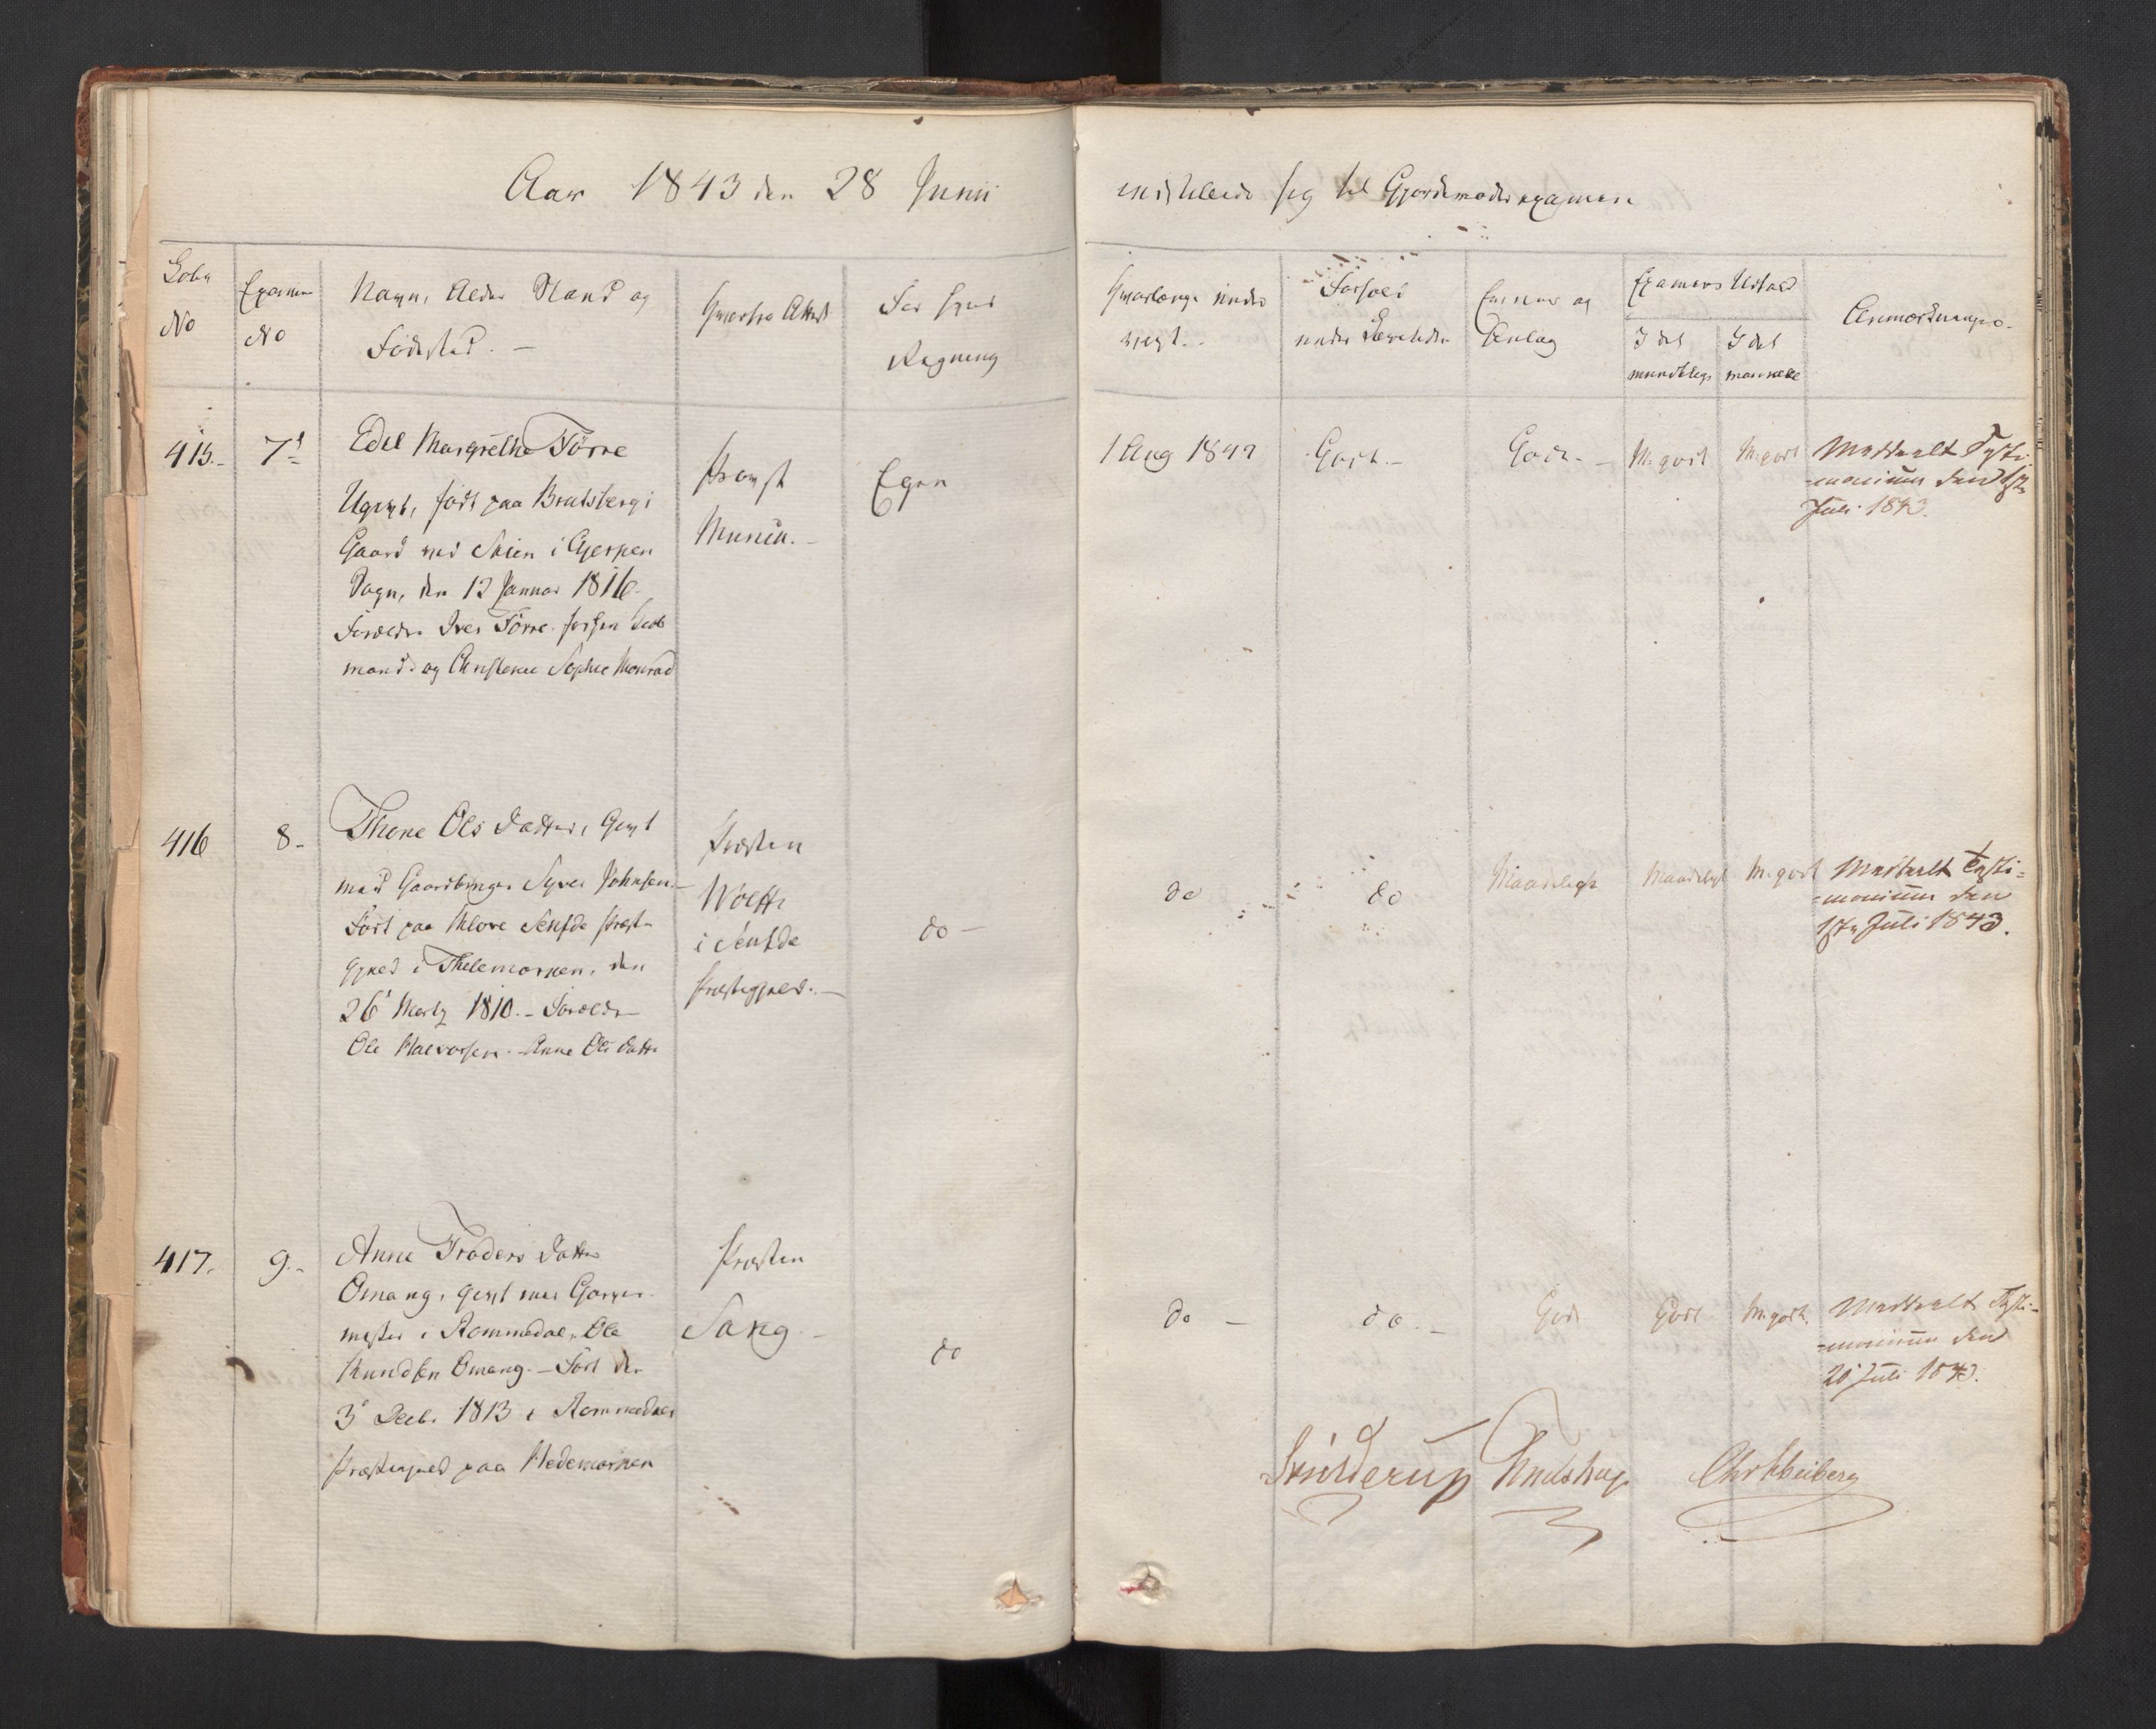 Aar 1843 den 28 Junii
indstillede sig til Gjordemoderexamen
Løbe
No
Examens
No
Navn, Alder Stand og
Fødested. —
Hvorfra Attest
For hvis
Regning
Hvorlænge under
viist.
Forhold
under Læretiden
Evner og
Anlæg
Examens Udfald
I det
mundtlige
I det
manuelle
Anmærkninger.
415.-
7d
Edel Margrethe Tørre
Ugivt, født paa Bratsberg
Gaard ved Skien i Gjerpen
Sogn, den 12 Januar 1816.
Forældre Iver Tørre. forhen Sko
mand. og Christence Sophie Monrad
Provst
Munch. -
Egen
1 Aug 1842
Godt. -
Gode. -
M. godt
M. godt
Meddeelt Testi
-monium den 1ste
Juli 1843.
416
8-
Thone Ols Datter, Givt
med Gaardbruger Syver Johnsen
Født paa Klove Seufde Præst-
gjeld i Thelemarken, den
26' Marty 1810. - Forældre
Ole Halvorsen. Anne Ols datter
Præsten
Wolff
i Seufde
Præstegjeld. -
do -
do
do
Maadelige
Maadeligt
M. godt
Meddeelt Testi-
-monium den
1ste Juli 1843.
417.
9.-
Anne Frøders Datter
Omang, givt med Garver
mester i Rommedal, Ole
Knudsen Omang. - Født den
3' Decb. 1813 i Rommedals
Præstegjeld paa Hedemarken
Præsten
Sang -
do
do -
do. -
Gode
Godt
M. godt.
Meddeelt Testi-
-monium den
20' Juli 1843.
Skielderup Thulstrup Chr Heiberg